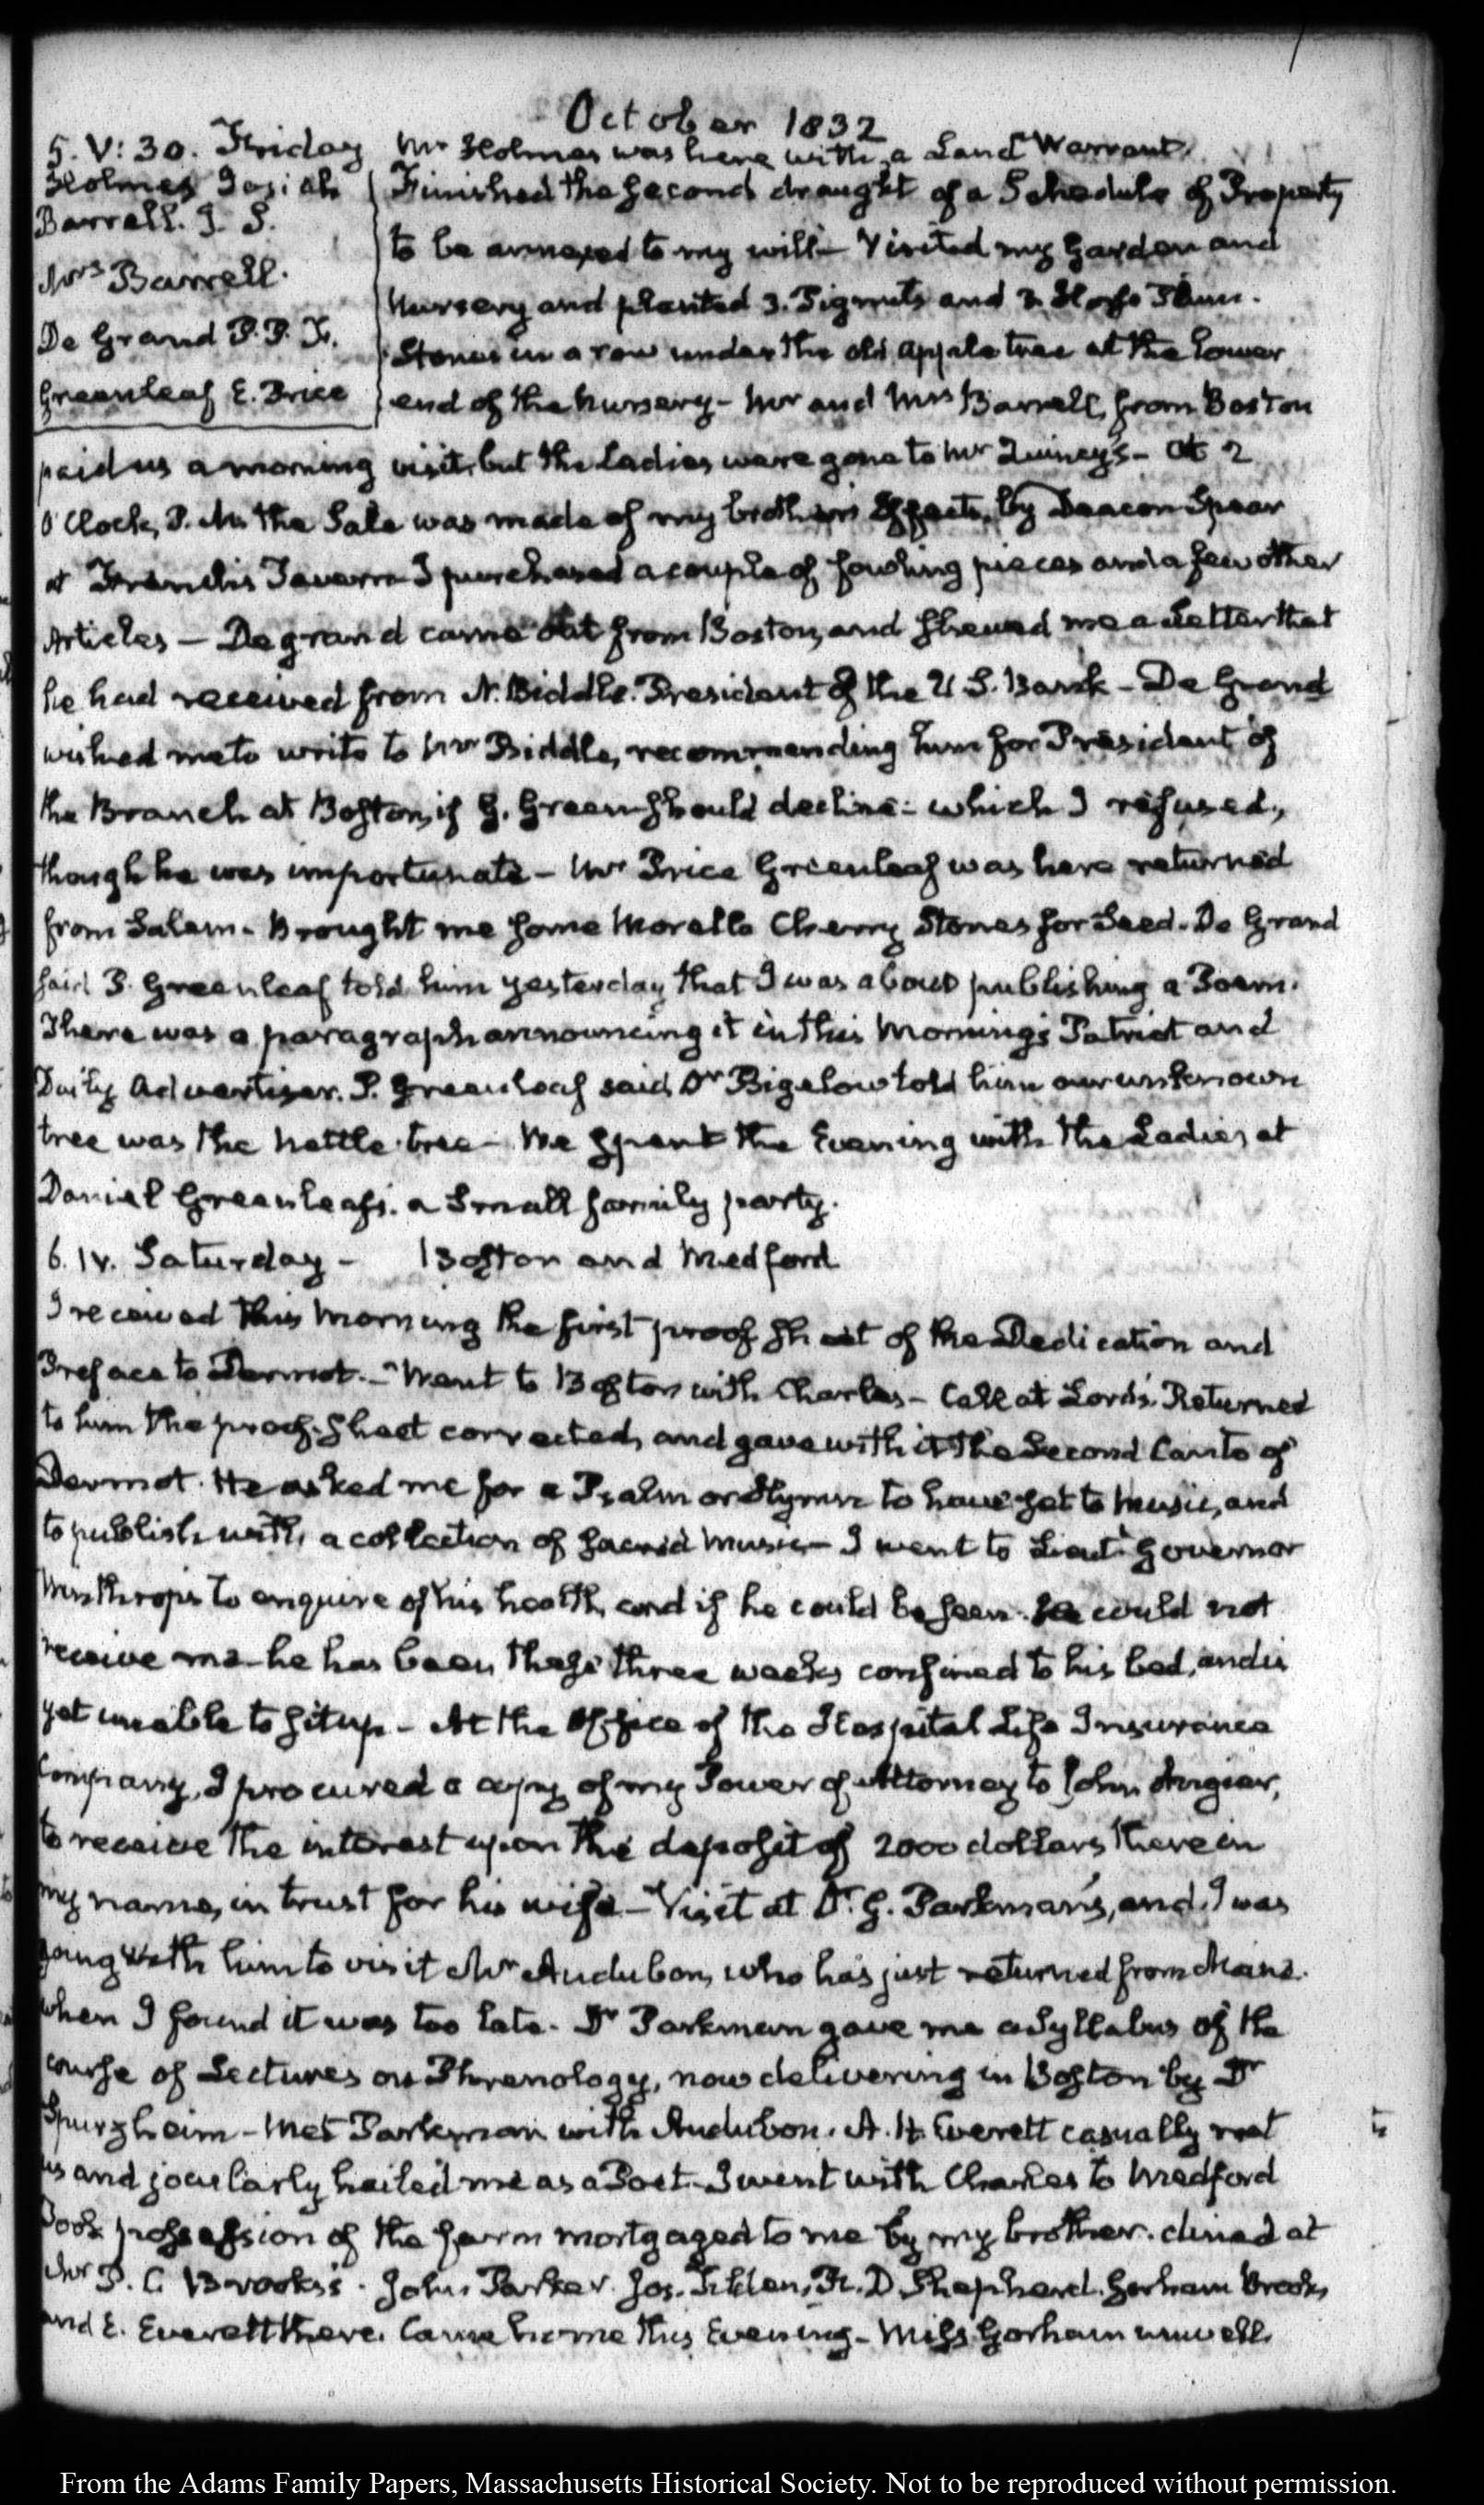 October 1832
5. V: 30. Friday
Holmes Josiah
Barrell. J. S.
Mrs Barrell.
De Grand P. P. F.
Greenleaf E. Price
Mr Holmes was here with a Land Warrant
Finished the second draught of a Schedule of Property
to be annexed to my will — Visited my Garden and
Nursery and planted 3. Pignuts and 3. Horse Plum.
Stones in a row under the old apple tree at the lower
end of the Nursery — Mr and Mrs Barrell, from Boston
paid us a morning visit, but the Ladies were gone to Mr Quincy's — At 2
O'Clock, P. M. the Sale was made of my brother's Effects, by Deacon Spear
at French's Tavern I purchased a couple of fowling pieces and a few other
Articles — Degrand came out from Boston, and shewed me a Letter that
he had received from N. Biddle. President of the U. S. Bank — De Grand
wished me to write to Mr Biddle, recommending him for President of
the Branch at Boston, if G. Green should decline — which I refused,
though he was importunate — Mr Price Greenleaf was here returned
from Salem — Brought me some Morello Cherry Stones for Seed. De Grand
said P. Greenleaf told him yesterday that I was about publishing a Poem.
There was a paragraph announcing it in this Morning's Patriot and
Daily Advertiser. P. Greenleaf said Dr Bigelow told him our unknown
tree was the nettle tree — We spent the Evening with the Ladies at
Daniel Greenleaf's. a small family party.
6. IV. Saturday — Boston and Medford
I received this Morning the first proof sheet of the Dedication and
Preface to Dermot. — Went to Boston with Charles — Call at Lord's. Returned
to him the proof-sheet corrected, and gave with it the Second Canto of
Dermot. He asked me for a Psalm or Hymn to have set to Music, and
to publish with a collection of sacred Music — I went to Lieut. Governor
Winthrop's to enquire of his health, and if he could be seen. He could not
receive me — he has been these three weeks confined to his bed, and is
yet unable to sit up — At the Office of the Hospital Life Insurance
Company, I procured a copy of my Power of Attorney to John Angier,
to receive the interest upon the deposit of 2000 dollars there in
my name, in trust for his wife — Visit at Dr. G. Parkman's, and I was
going with him to visit Mr Audubon, who has just returned from Maine.
when I found it was too late. Dr Parkman gave me a Syllabus of the
course of Lectures on Phrenology, now delivering in Boston by Dr
Spurzheim — Met Parkman with Audubon. A. H. Everett casually met
us and jocularly hailed me as a Poet — I went with Charles to Medford
Took possession of the farm mortgaged to me by my brother. dined at
Mr P. C. Brooks's. John Parker. Jos. Tilden, R. D. Shepherd. Gorham Brooks,
and E. Everett there. Came home this Evening — Miss Gorham unwell.
From the Adams Family Papers, Massachusetts Historical Society. Not to be reproduced without permission.